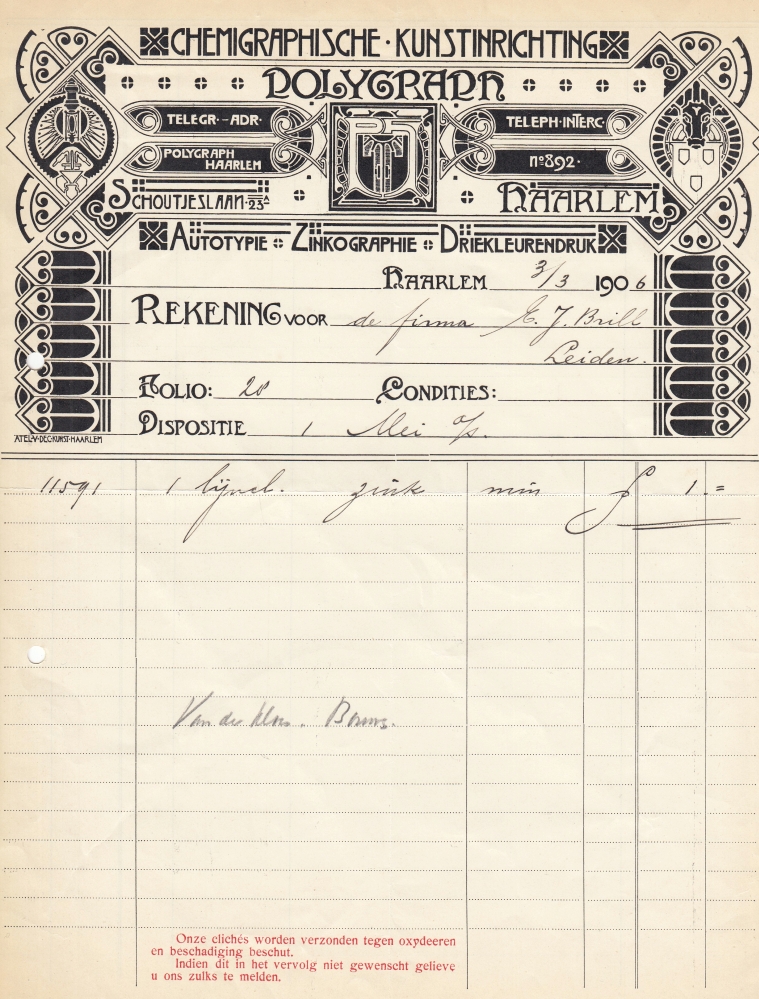 CHEMIGRAPHISCHE · KUNSTINRICHTING
POLYGRAPH
TELEGR·-ADR·
TELEPH·INTERC·
POLYGRAPH
HAARLEM
no 892·
SCHOUTJESLAAN·23A
HAARLEM
AUTOTYPIE ZINKOGRAPHIE DRIEKLEURENDRUK
HAARLEM 3/3 1906
REKENING VOOR de firma E. J. Brill
Leiden.
FOLIO: 20 CONDITIES:
DISPOSITIE 1 Mei a/s.
ATEL·V·DEC·KUNST·HAARLEM
11591 1 lijncl. zink min f 1.=
Van der Boums.
Onze clichés worden verzonden tegen oxydeeren
en beschadiging beschut.
Indien dit in het vervolg niet gewenscht gelieve
u ons zulks te melden.